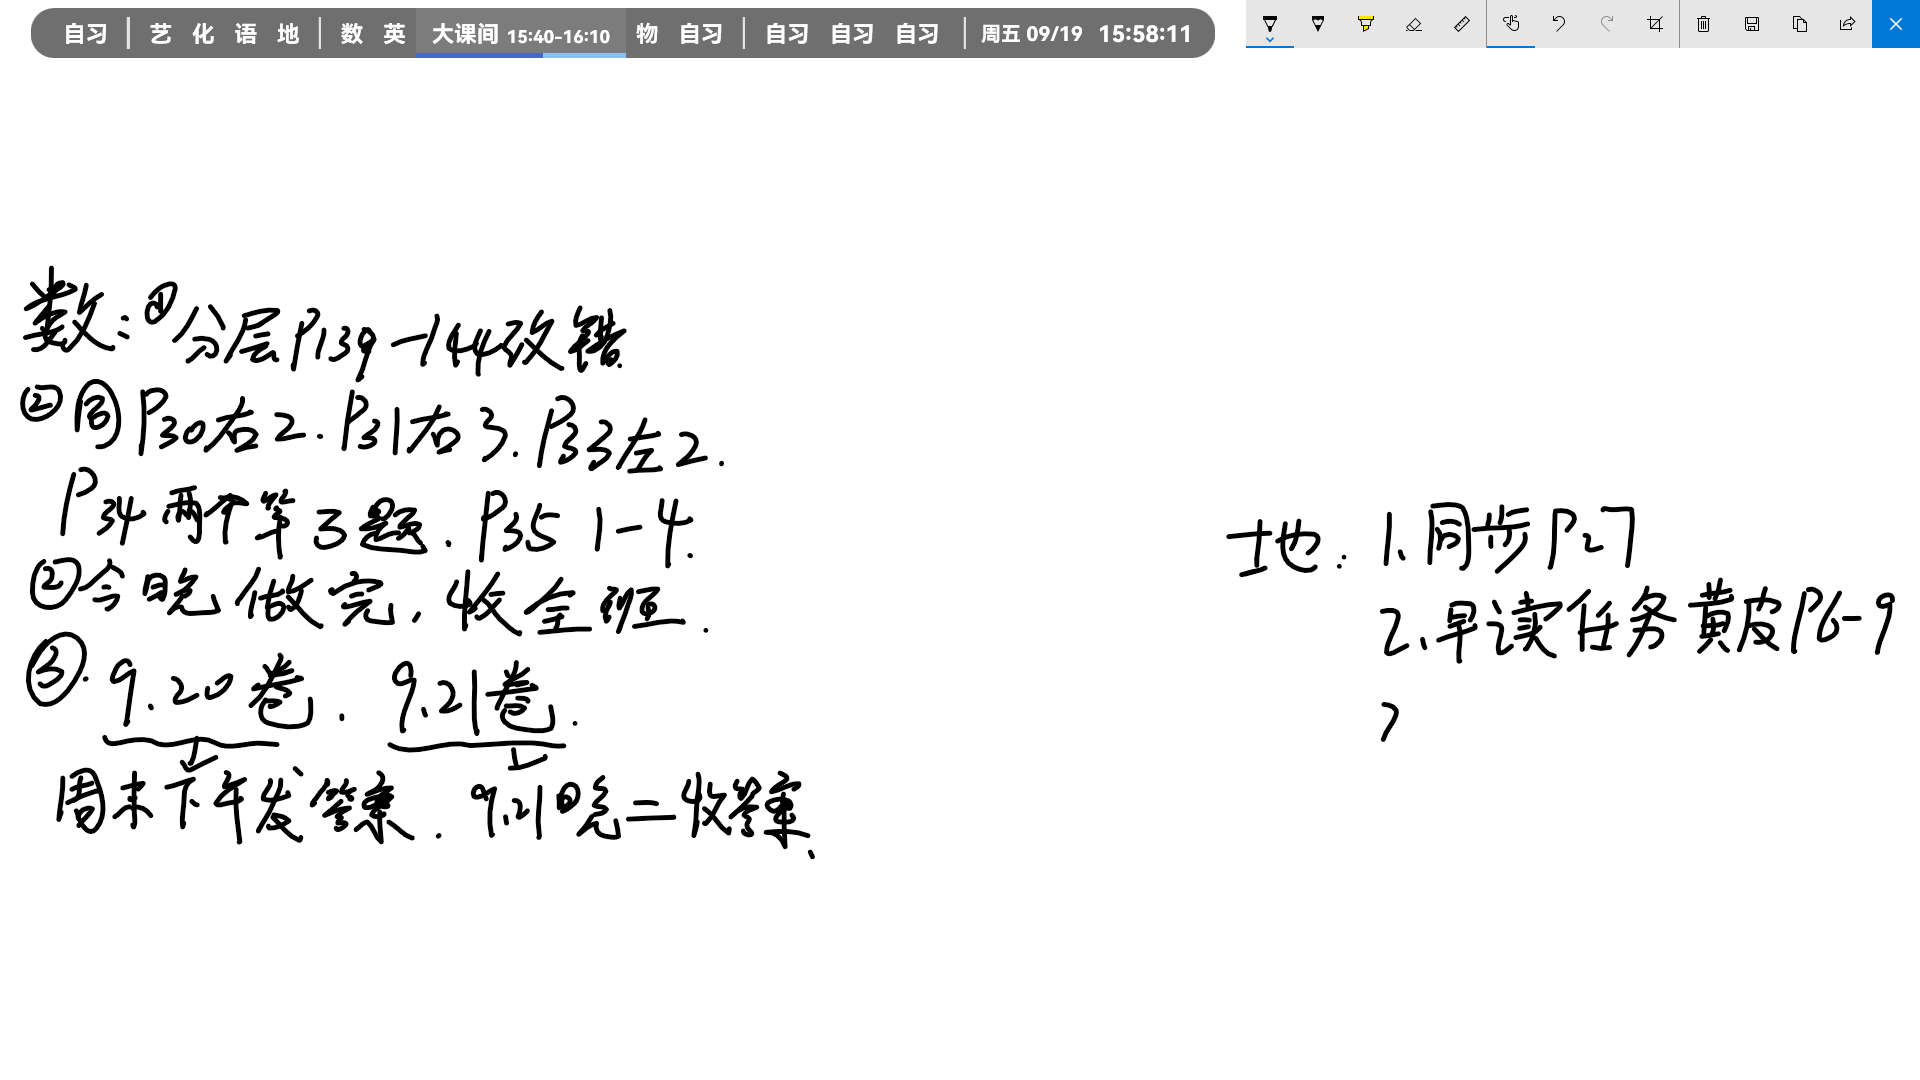 自习 | 艺 化 语 地 | 数 英 大课间 15:40-16:10 物 自习 | 自习 自习 自习 | 周五 09/19 15:58:11
数:①分层P139-144改错.
②同P30右2.P31右3.P33左2.
P34两个第3题.P35 1-4.
②今晚做完,收全班.
③.9.20卷.9.21卷.
周末下午发答案.9.21晚二收答案、
地:1、同步P27
2、早读任务黄皮P6-9